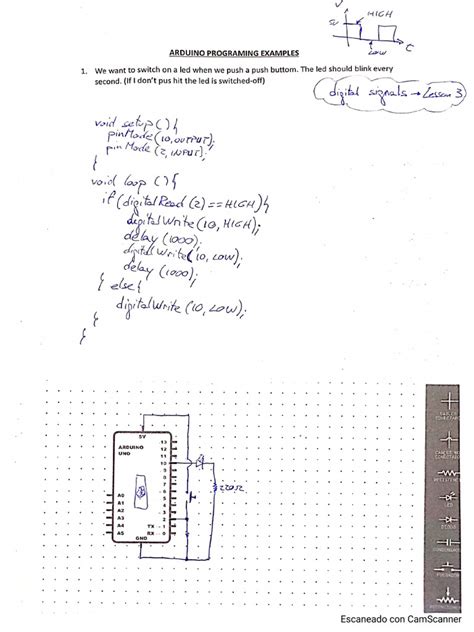 V
HIGH
5V
LOW
ARDUINO PROGRAMING EXAMPLES
1. We want to switch on a led when we push a push buttom. The led should blink every
second. (If I don't pus hit the led is switched-off)
digital signals → Lesson 3
void setup() {
pinMode (10, OUTPUT);
pinMode (2, INPUT);
}
void loop () {
if (digitalRead (2) == HIGH) {
digitalWrite (10, HIGH);
delay (1000);
digitalWrite (10, LOW);
delay (1000);
} else {
digitalWrite (10, LOW);
}
}
5V
ARDUINO
UNO
13
12
11
10
9
8
7
6
5
4
3
2
TX - 1
RX - 0
A0
A1
A2
A3
A4
A5
GND
220Ω
LED
Escaneado con CamScanner